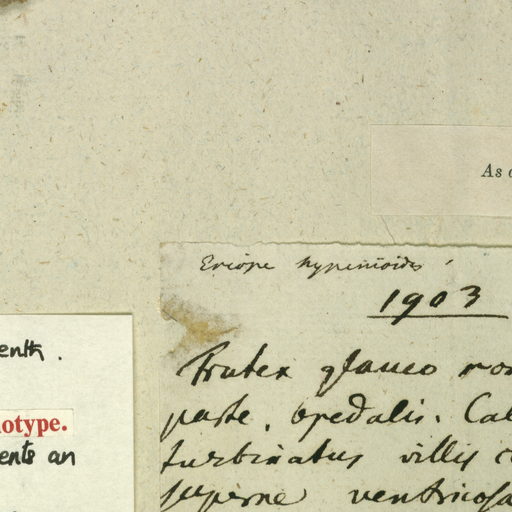 As
Eriope hypenioides
1903
Frutex glauco
parte, opedalis. Cal
turbinatus villis
superne ventricosa
enth.
otype.
ents an